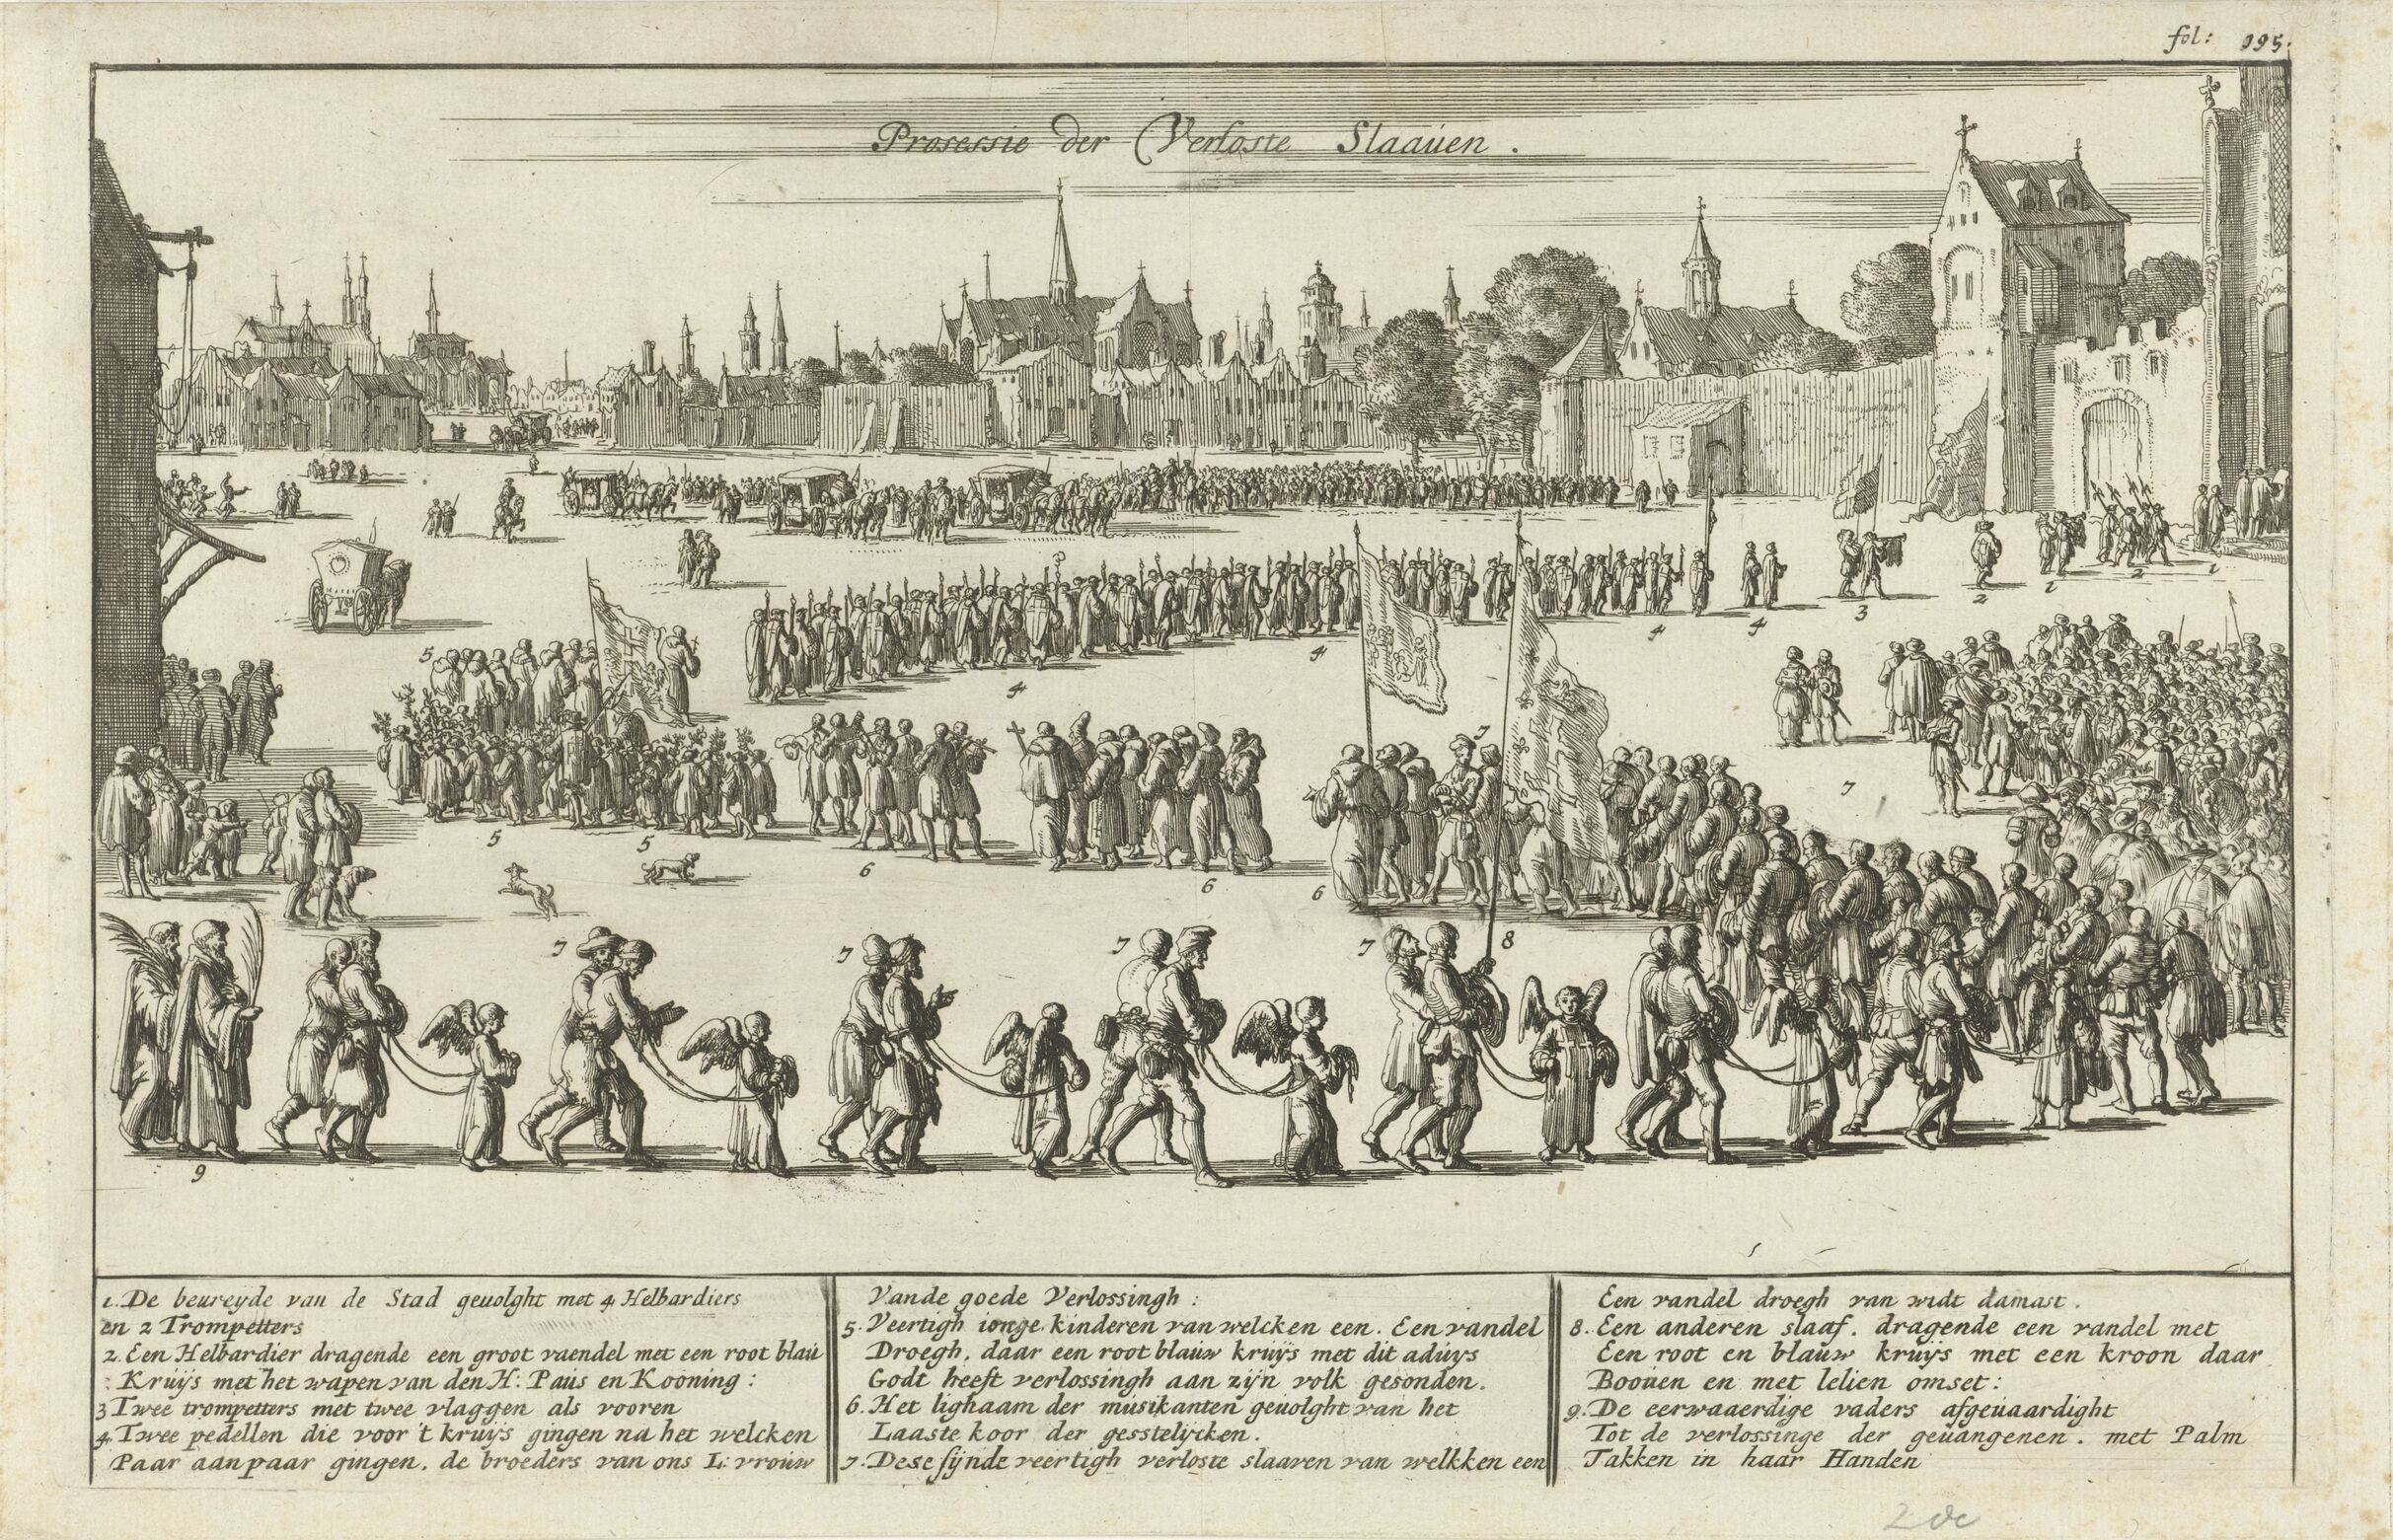 fol: 195.
Prosessie der Verloste Slaauen.
1. De beureyde van de Stad geuolght met 4 Helbardiers
en 2 Trompetters
2. Een Helbardier dragende een groot vaendel met een root blau
Kruys met het wapen van den H: Paus en Kooning:
3 Twee trompetters met twee vlaggen als vooren
4. Twee pedellen die voor 't kruys gingen na het welcken
Paar aan paar gingen. de broeders van ons L: vrouw
Vande goede Verlossingh:
5. Veertigh ionge kinderen van welcken een. Een vandel
Droegh, daar een root blauw kruys met dit aduys
Godt heeft verlossingh aan zijn volk gesonden.
6. Het lighaam der musikanten geuolght van het
Laaste koor der gesstelycken.
7. Dese sijnde veertigh verloste slaaven van welkken een
Een vandel droegh van widt damast.
8. Een anderen slaaf. dragende een vandel met
Een root en blauw kruys met een kroon daar
Boouen en met lelien omset:
9. De eerwaaerdige vaders afgeuaardight
Tot de verlossinge der geuangenen. met Palm
Takken in haar Handen
2 de